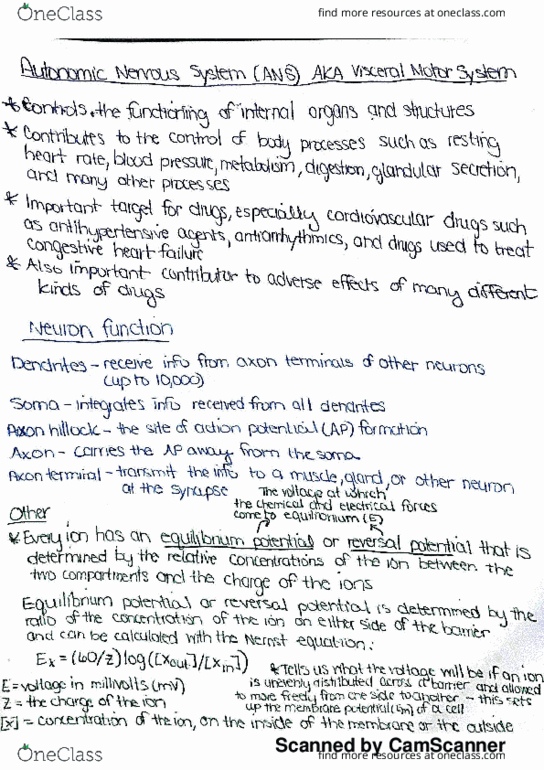 OneClass
find more resources at oneclass.com
Autonomic Nervous System (ANS) AKA Visceral Motor System
* Controls the functioning of internal organs and structures
* Contributes to the control of body processes such as resting
heart rate, blood pressure, metabolism, digestion, glandular secretion,
and many other processes
* Important target for drugs, especially cardiovascular drugs such
as antihypertensive agents, antiarrhythmics, and drugs used to treat
congestive heart failure
* Also important contributor to adverse effects of many different
kinds of drugs
Neuron function
Dendrites - receive info from axon terminals of other neurons
(up to 10,000)
Soma - integrates info received from all dendrites
Axon hillock - the site of action potential (AP) formation
Axon - carries the AP away from the soma
Axon terminal - transmit the info to a muscle, gland, or other neuron
at the synapse
The voltage at which
the chemical and electrical forces
come to equilibrium (E)
Other
* Every ion has an equilibrium potential or reversal potential that is
determined by the relative concentrations of the ion between the
two compartments and the charge of the ions
Equilibrium potential or reversal potential is determined by the
ratio of the concentration of the ion on either side of the barrier
and can be calculated with the Nernst equation:
Ex = (60/z) log([Xout]/[Xin])
* Tells us what the voltage will be if an ion
is unevenly distributed across a barrier and allowed
to move freely from one side to another - this sets
up the membrane potential (Em) of a cell
E = voltage in millivolts (mV)
Z = the charge of the ion
[x] = concentration of the ion, on the inside of the membrane or the outside
Scanned by CamScanner
OneClass
find more resources at oneclass.com